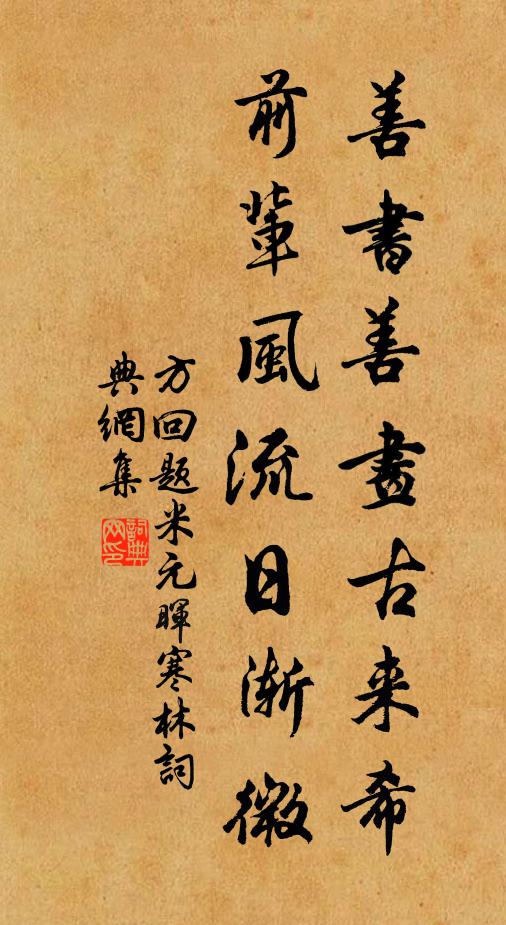 善書善畫古来希
前輩風流日漸微
方回題米元暉寒林詞
典網集
詞典网印